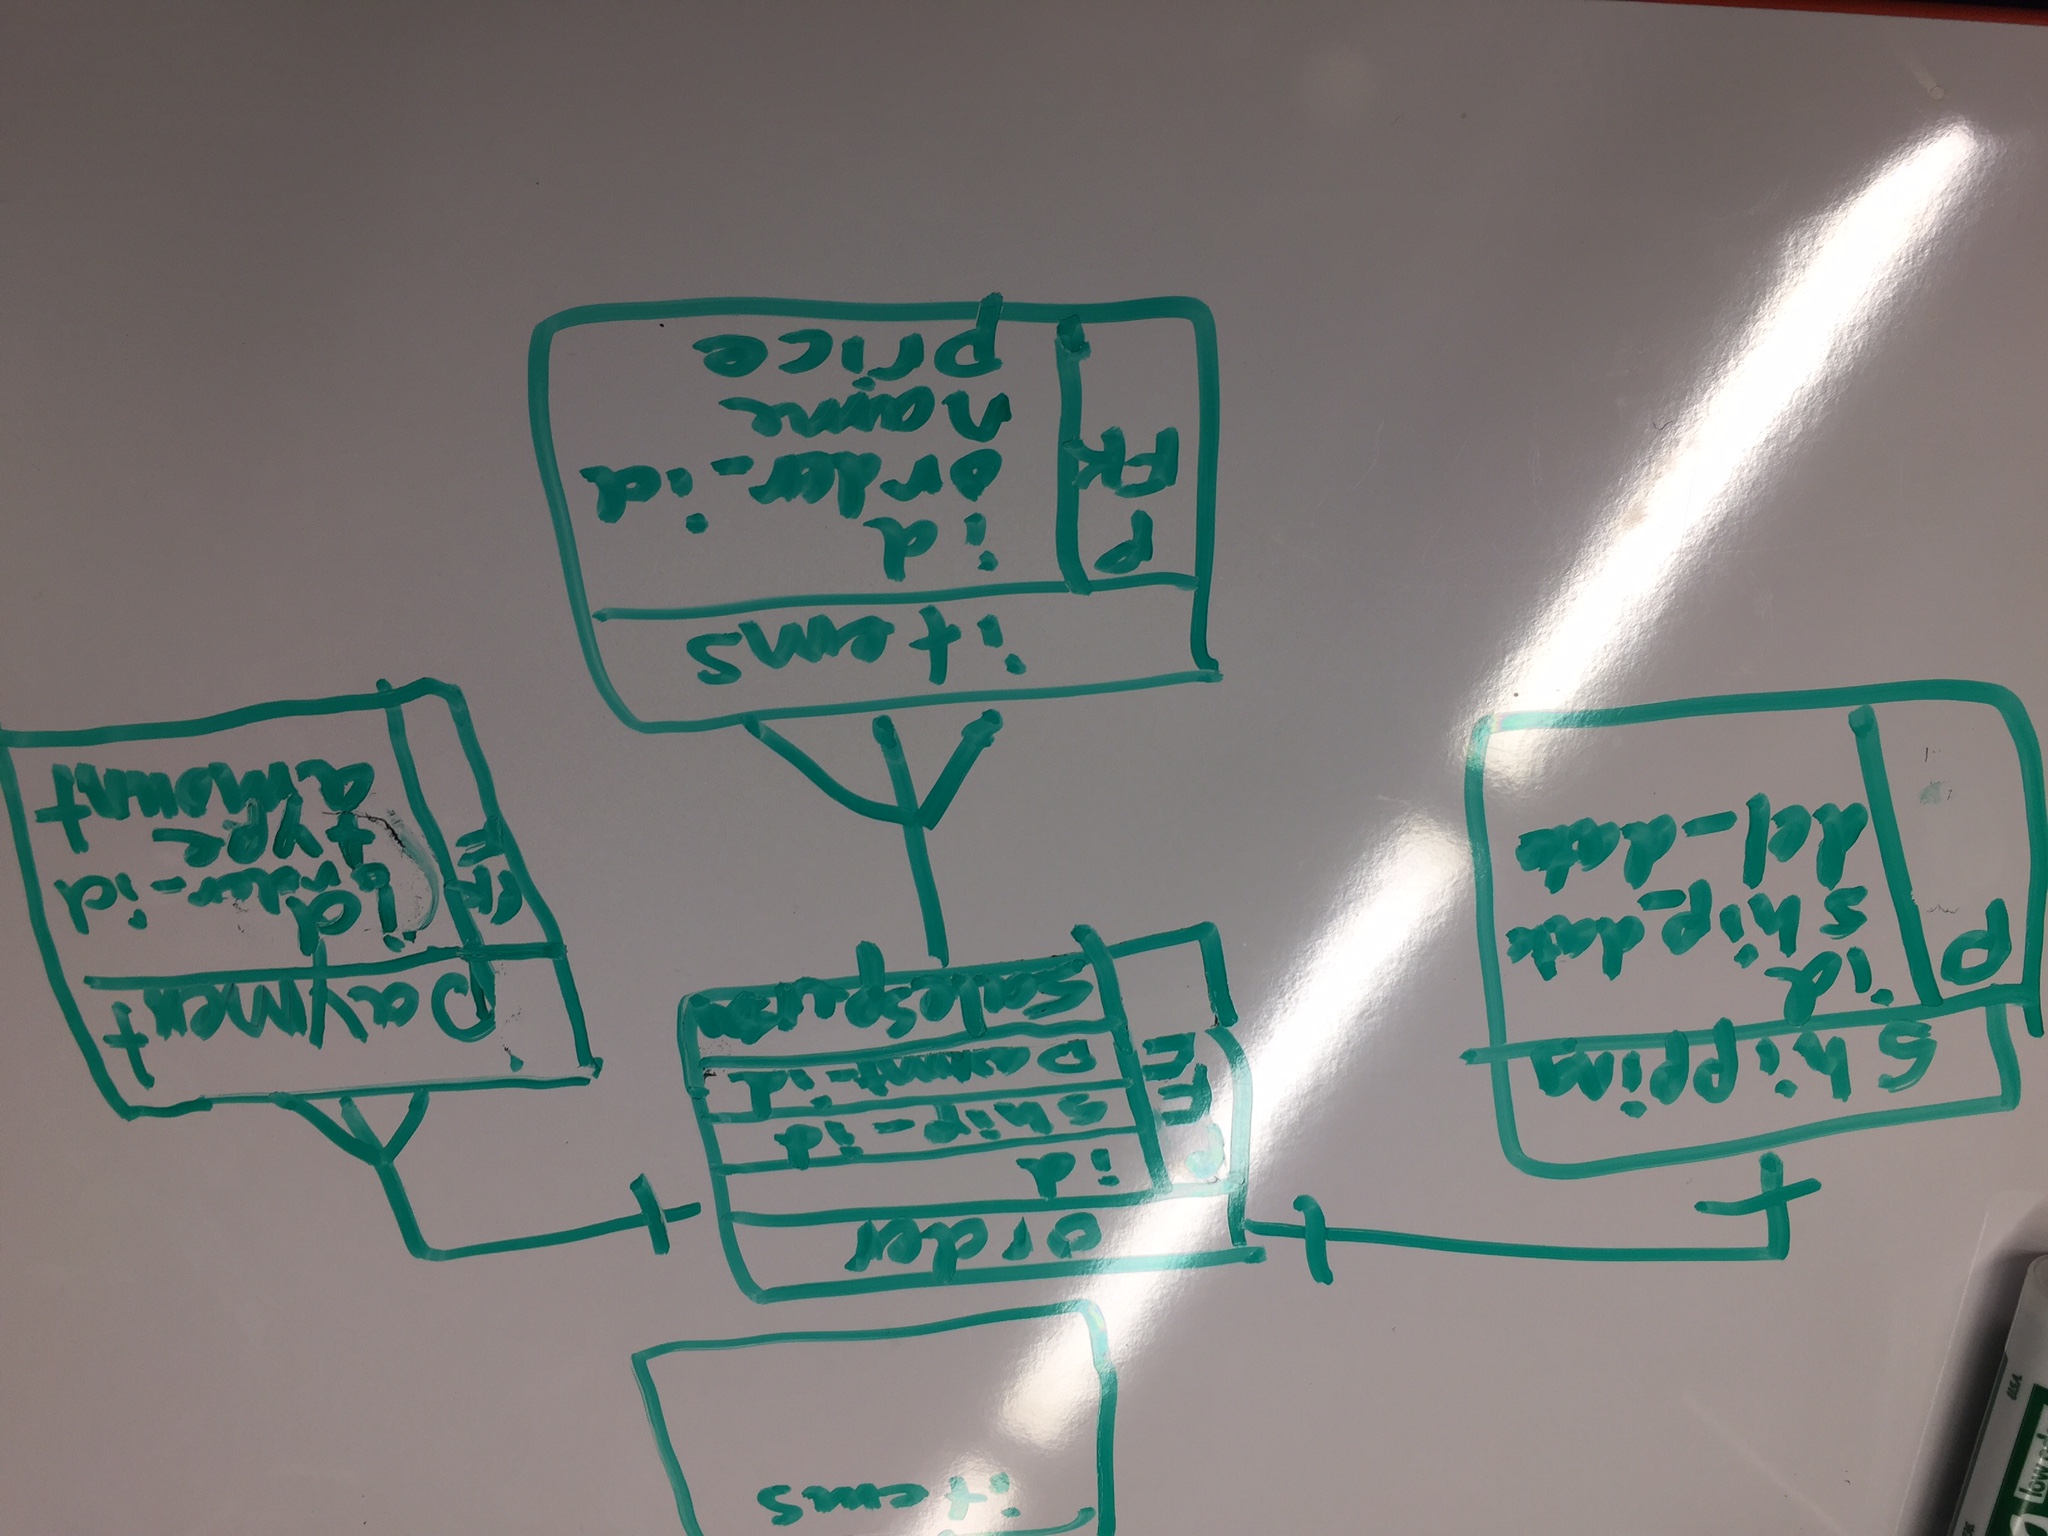 items
order
P id
F ship_id
F payment_id
salesperson
shipping
P id
ship_date
del_date
payment
PK id
F order_id
type
amount
items
P id
FK order_id
name
price